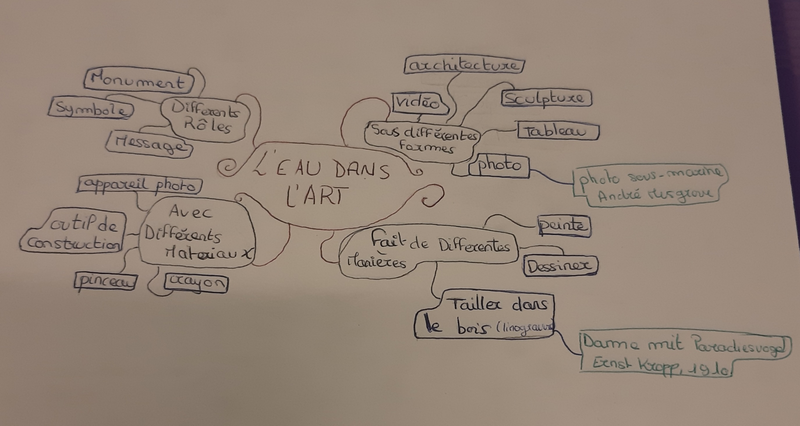 Monument
Symbole
Différents
Rôles
Message
architecture
vidéo
sculpture
Sous différentes
formes
Tableau
photo
photo sous-marine
André Musgrove
L'EAU DANS
L'ART
appareil photo
Avec
Différents
Materiaux
outil de
construction
pinceau
crayon
Fait de Differentes
Manières
peinte
Dessiner
Tailler dans
le bois (linogravure)
Dame mit Paradiesvogel
Ernst Kropp, 1910